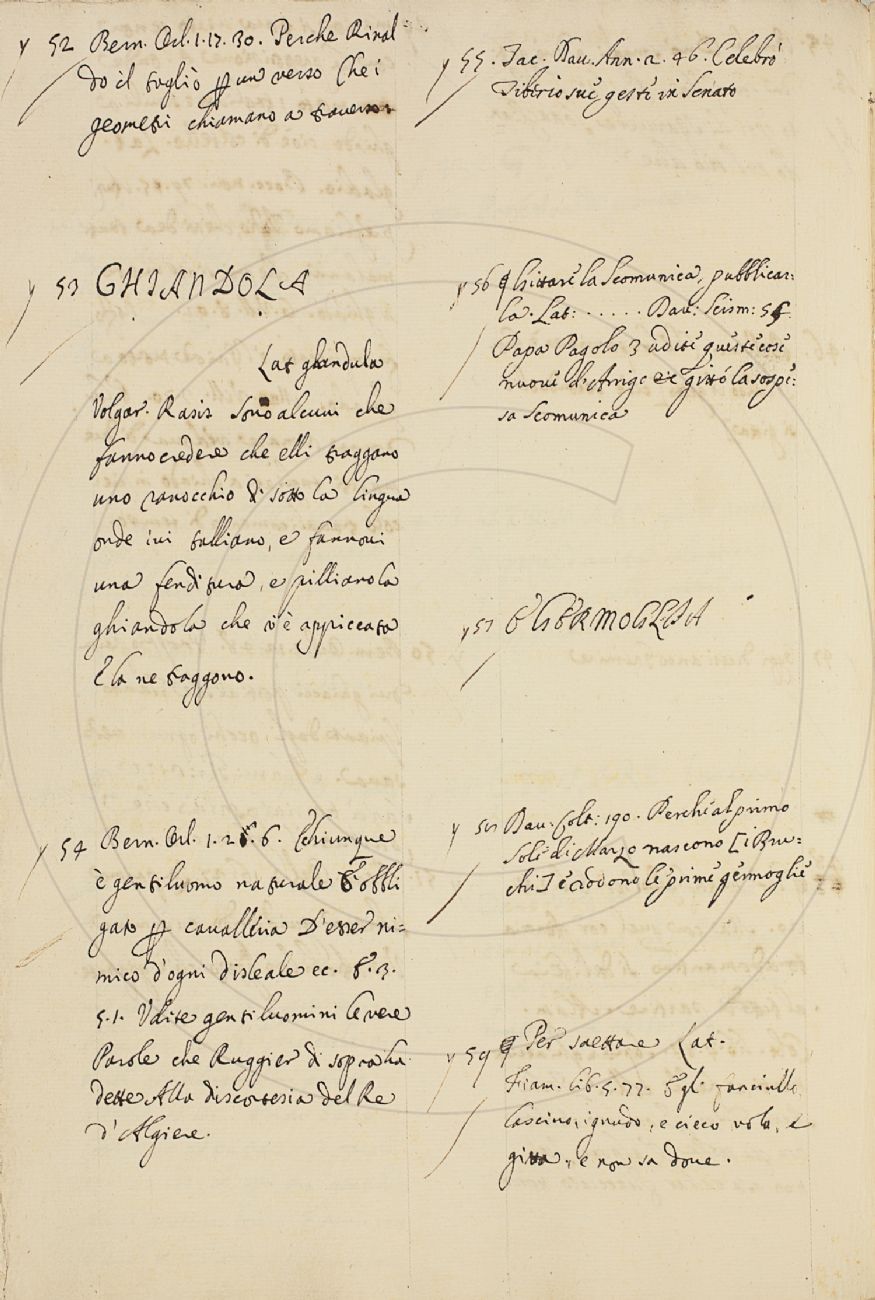 y 52 Bern. Orl. 1. 17. 30. Perche Rinal
do il tagliò p un verso Che i
geometri chiamano a traverso
y 53 GHIANDOLA
Lat glandula
Volgar. Rasis Sono alcuni che
fanno credere che elli traggano
uno ranocchio di sotto la lingua
onde ivi talliano, e fannovi
una fenditura, e pilliano la
ghiandola che v'è appiccata
E la ne traggono.
y 54 Bern. Orl. 1. 25. 6. Chiunque
è gentiluomo naturale E' obbli
gato p cavalleria D'esser ni=
mico d'ogni disleale ec. E. 3.
5. 1. Udite gentiluomini le vere
Parole che Ruggier di sopra ha
dette Alla discortesia del Re
d'Algiere.
y 55. Tac. Dav. Ann. 2. 46. Celebrò
Tiberio sue gesti in Senato
y 56 q Gittare la Scomunica, pubblicar=
la. Lat: . . . . . . Dav: Scism: 54.
Papa Pagolo 3 udite queste cose
nuove d'Arrigo ec gittò la sospe=
sa Scomunica
y 57 GERMOGLIA
y 58 Dav. Colt: 190. Perchè al primo
Sole di Marzo nascono [i Bru=
chi] e rodono le prime germoglie
y 59 q Per saettare Lat.
Fiam. lib. 5. 77. E gl. fanciullo
lascivo, ignudo, e cieco vola, e
gitta, e non sa dove.